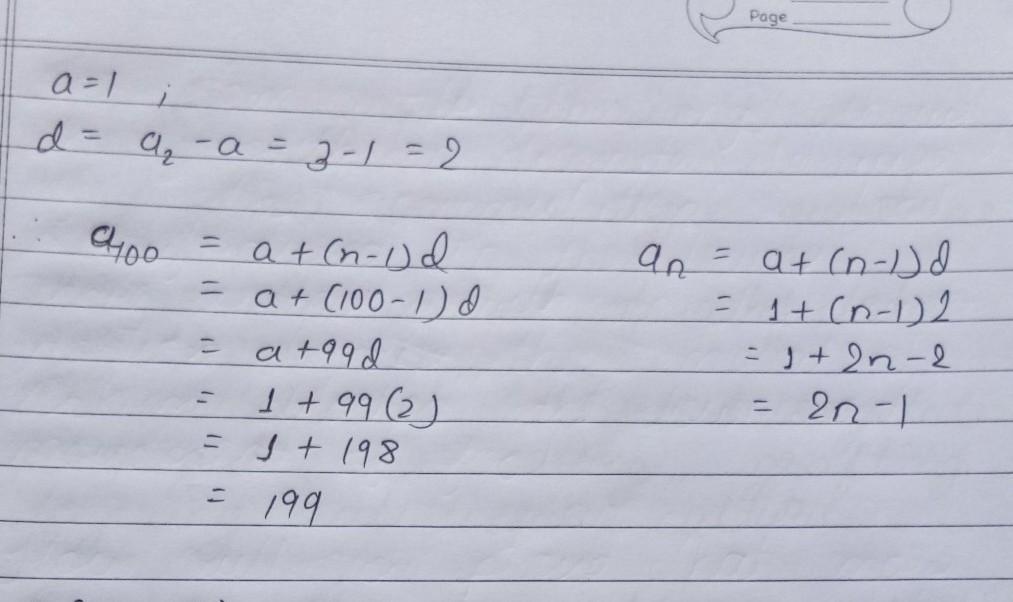 Page
a = 1 ;
d = a₂ - a = 3 - 1 = 2
a₁₀₀ = a + (n-1)d
= a + (100-1)d
= a + 99d
= 1 + 99(2)
= 1 + 198
= 199
aₙ = a + (n-1)d
= 1 + (n-1)2
= 1 + 2n - 2
= 2n - 1